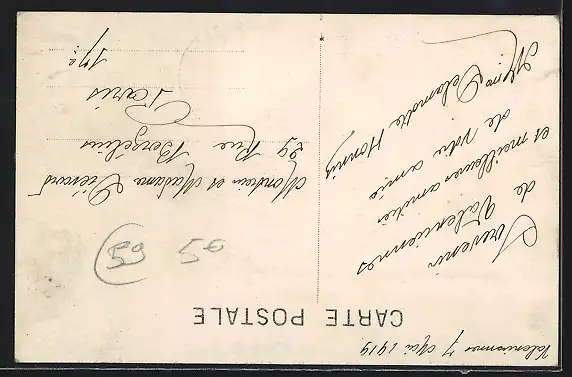 Valenciennes 7 Mai 1919
CARTE POSTALE
Souvenir
de Valenciennes
et meilleures amitiés
de votre amie
Mme Delamotte
Monsieur et Madame
29 Rue Berzélius
Paris
17e
59 5€